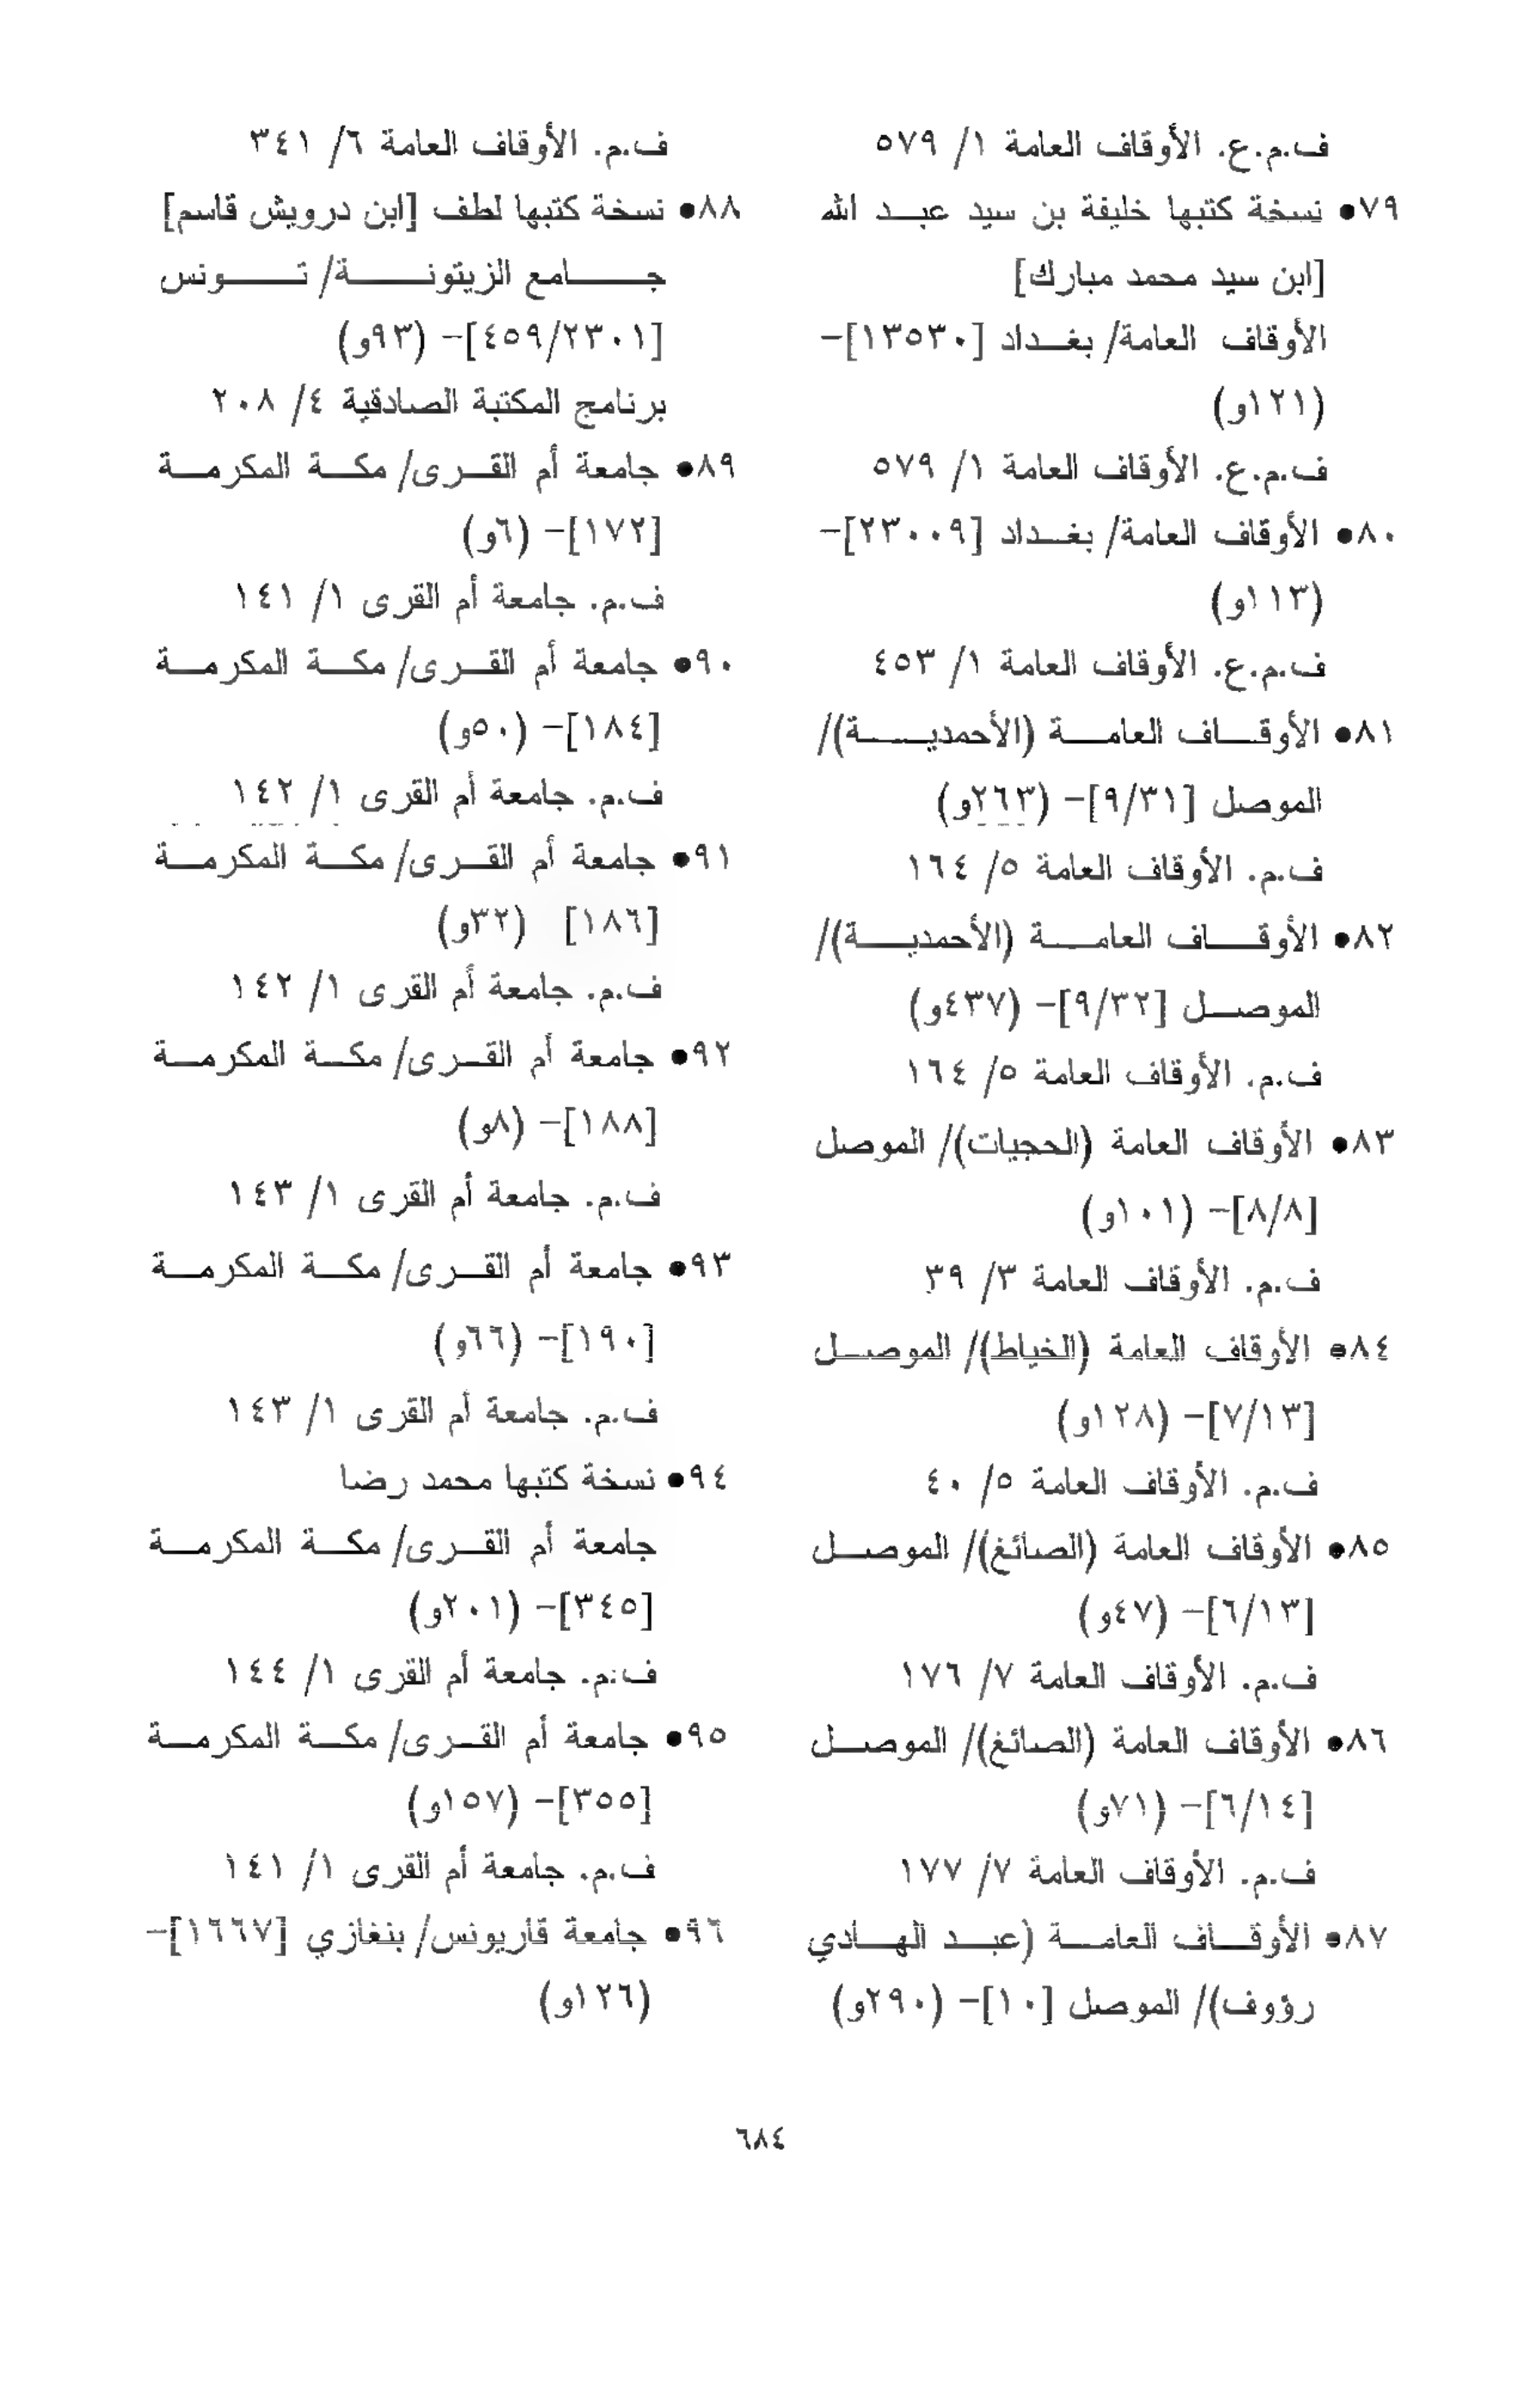 ف.م.ع. الأوقاف العامة ١/ ٥٧٩
٧٩● نسخة كتبها خليفة بن سيد عبد الله
[ابن سيد محمد مبارك]
الأوقاف العامة/ بغداد [١٣٥٣٠]-
(١٢١و)
ف.م.ع. الأوقاف العامة ١/ ٥٧٩
٨٠● الأوقاف العامة/ بغداد [٢٣٠٠٩]-
(١١٣و)
ف.م.ع. الأوقاف العامة ١/ ٤٥٣
٨١● الأوقاف العامة (الأحمدية)/
الموصل [٩/٣١]- (٢٦٣و)
ف.م. الأوقاف العامة ٥/ ١٦٤
٨٢● الأوقاف العامة (الأحمدية)/
الموصل [٩/٣٢]- (٤٣٧و)
ف.م. الأوقاف العامة ٥/ ١٦٤
٨٣● الأوقاف العامة (الحجيات)/ الموصل
[٨/٨]- (١٠١و)
ف.م. الأوقاف العامة ٣/ ٣٩
٨٤● الأوقاف العامة (الخياط)/ الموصل
[٧/١٣]- (١٢٨و)
ف.م. الأوقاف العامة ٥/ ٤٠
٨٥● الأوقاف العامة (الصائغ)/ الموصل
[٦/١٣]- (٤٧و)
ف.م. الأوقاف العامة ٧/ ١٧٦
٨٦● الأوقاف العامة (الصائغ)/ الموصل
[٦/١٤]- (٧١و)
ف.م. الأوقاف العامة ٧/ ١٧٧
٨٧● الأوقاف العامة (عبد الهادي
رؤوف)/ الموصل [١٠]- (٢٩٠و)
ف.م. الأوقاف العامة ٦/ ٣٤١
٨٨● نسخة كتبها لطف [ابن درويش قاسم]
جامع الزيتونة/ تونس
[٤٥٩/٢٣٠١]- (٩٣و)
برنامج المكتبة الصادقية ٤/ ٢٠٨
٨٩● جامعة أم القرى/ مكة المكرمة
[١٧٢]- (٦و)
ف.م. جامعة أم القرى ١/ ١٤١
٩٠● جامعة أم القرى/ مكة المكرمة
[١٨٤]- (٥٠و)
ف.م. جامعة أم القرى ١/ ١٤٢
٩١● جامعة أم القرى/ مكة المكرمة
[١٨٦] (٣٢و)
ف.م. جامعة أم القرى ١/ ١٤٢
٩٢● جامعة أم القرى/ مكة المكرمة
[١٨٨]- (٨و)
ف.م. جامعة أم القرى ١/ ١٤٣
٩٣● جامعة أم القرى/ مكة المكرمة
[١٩٠]- (٦٦و)
ف.م. جامعة أم القرى ١/ ١٤٣
٩٤● نسخة كتبها محمد رضا
جامعة أم القرى/ مكة المكرمة
[٣٤٥]- (٢٠١و)
ف.م. جامعة أم القرى ١/ ١٤٤
٩٥● جامعة أم القرى/ مكة المكرمة
[٣٥٥]- (١٥٧و)
ف.م. جامعة أم القرى ١/ ١٤١
٩٦● جامعة قاريونس/ بنغازي [١٦٦٧]-
(١٢٦و)
٦٨٤